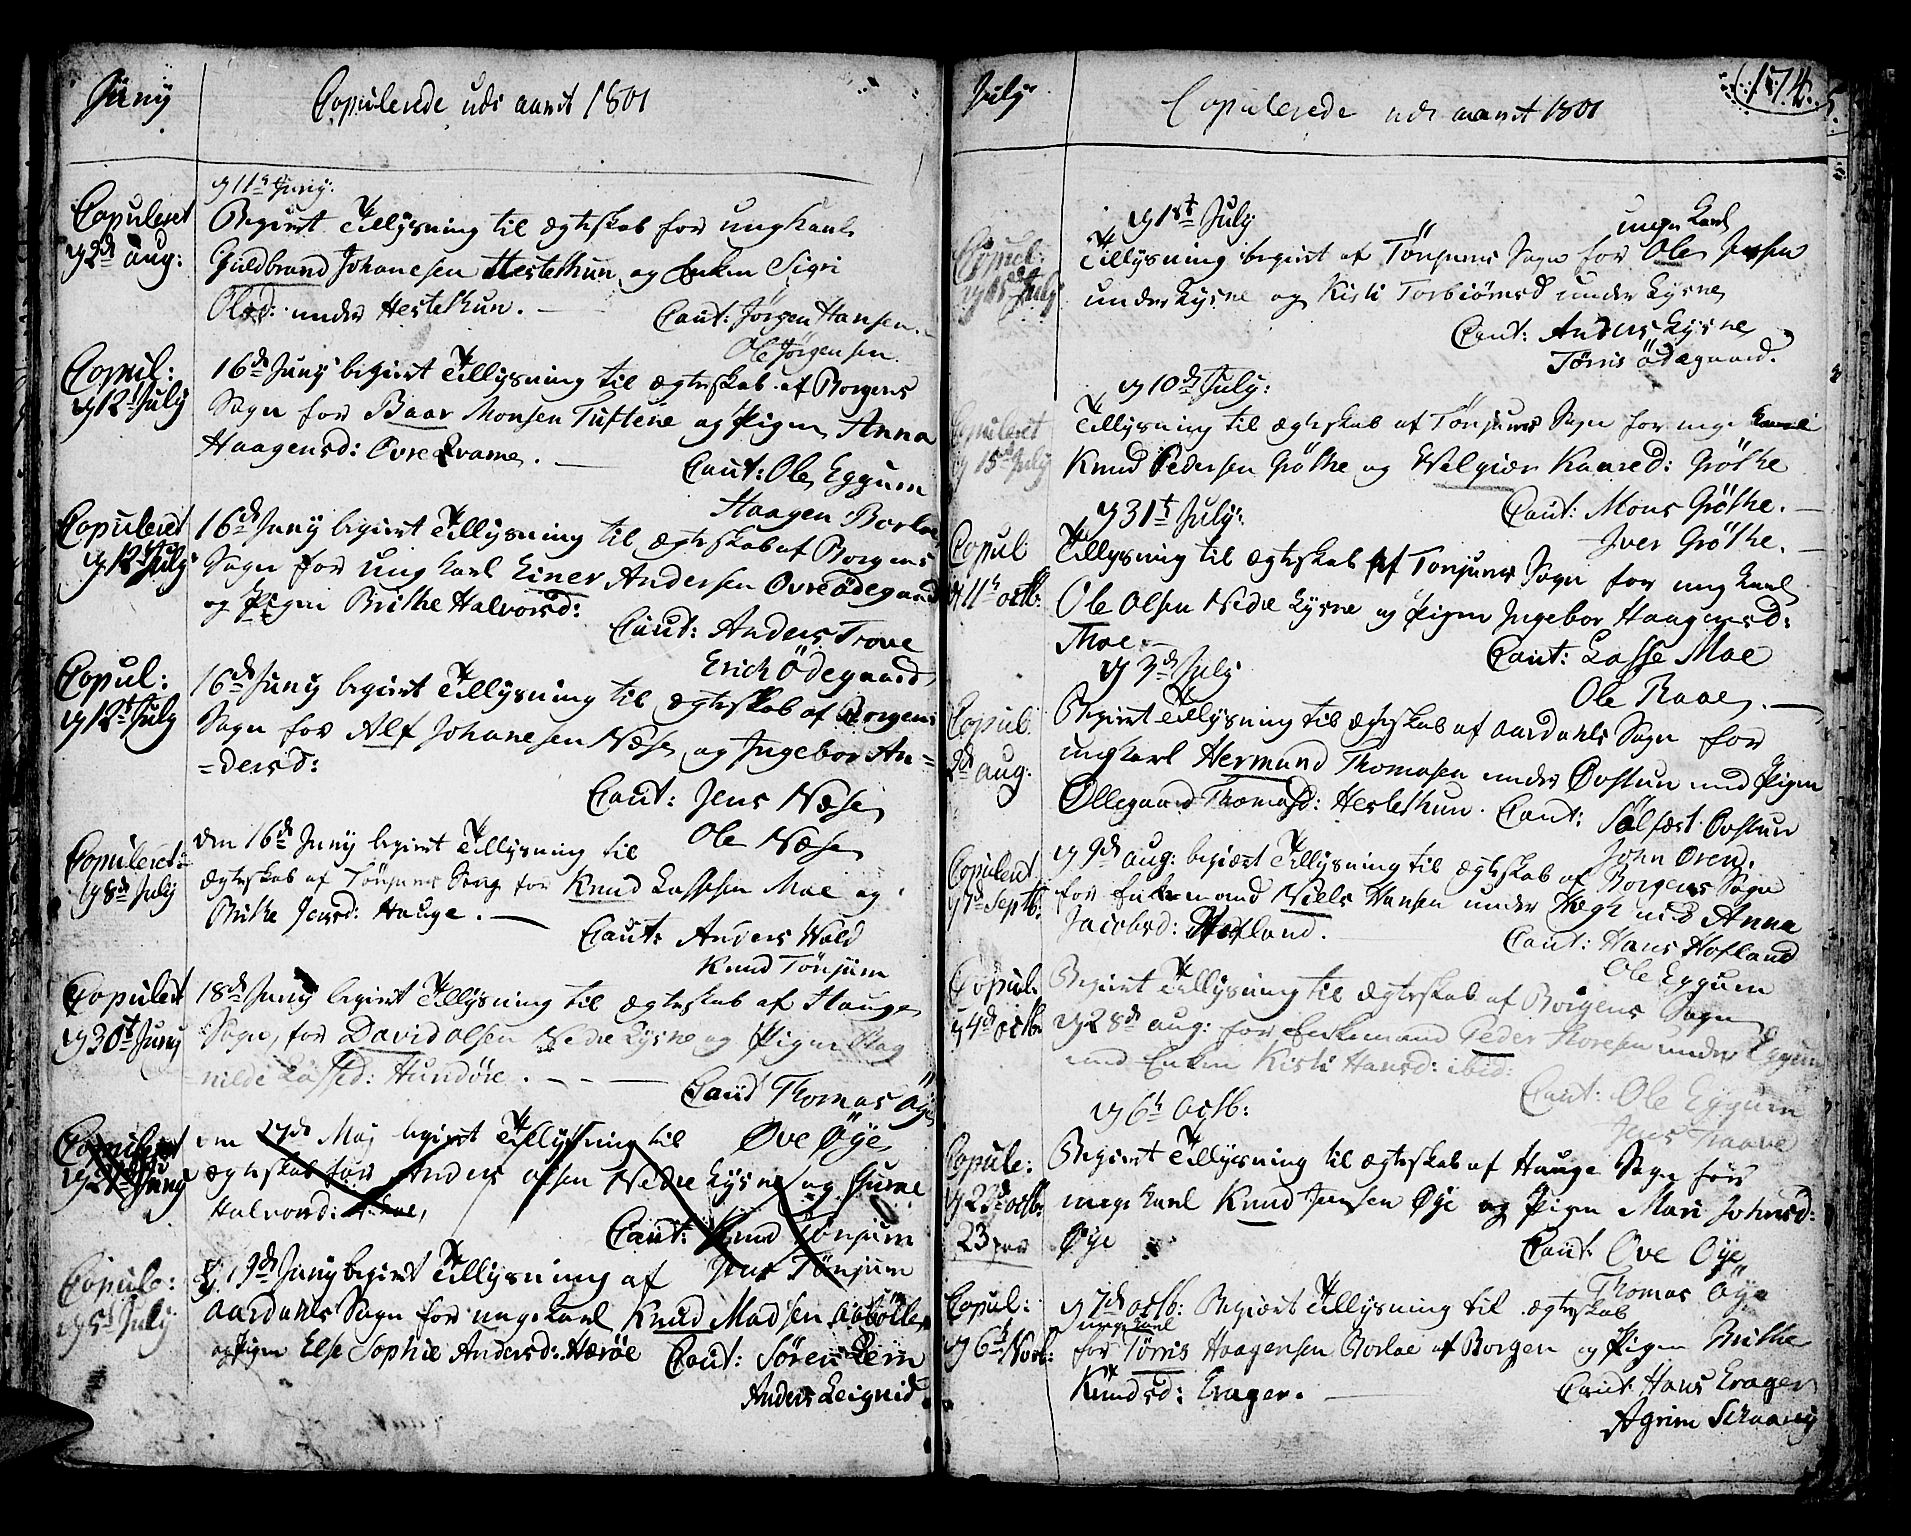 Juny
Copulerede udi aaret 1801
Copuleret
d 2de aug:
d 11te Juny:
Begiert Tillysning til ægteskab for ungkarl
Guldbrand Johanesen Hestethun og Enken Sigri
Olsd: under Hestethun. Caut: Jørgen Hansen
Ole Jørgensen.
Copul:
d 12t July
16de Juny begiert Tillysning til ægteskab af Borgens
Sogn for Baar Monsen Tuftene og Pigen Anna
Haagensd: Øvre Qvame. Caut: Ole Eggum
Haagen Borlae
Copuleret
d 12t July
16de Juny begiert Tillysning til ægteskab af Borgens
Sogn for ungkarl Einer Andersen Øvreödegaard
og Pigen Brithe Halvorsd:
Caut: Anders Trove
Erich Ödegaard
Copul:
d 12t July
16de Juny begiert Tillysning til ægteskab af Borgens
Sogn for Alf Johanesen Næse og Ingebor An=
=dersd:
Caut: Jens Næse
Ole Næse
Copuleret
d 8de July
den 16de Juny begiert Tillysning til
ægteskab af Tönjums Sogn for Knud Lassesen Moe og
Brithe Jensd: Hauge.
Caut: Anders Wold
Knud Tönjum
Copuleret
d 30t Juny
18de Juny begiert Tillysning til ægteskab af Hauge
Sogn, for David Olsen Nedre Lysne og Pigen Rag
nilde Lassed: Hundøre.
Caud Thomas Öye
Ove Øye
Copuleret
d 21t Juny
den 27de Maj begiert Tillysning til
ægteskab for Anders Olsen Nedre Lysne og Gurue
Halvorsd:
Caut: Knud Tönjum
Jens Tönjum
Copule:
d 5t July
d 19de Juny begiert Tillysning af
Aardahls Sogn for ungekarl Knud Madsen
og Pigen Else Sophie Andersd: Hærøe Caut: Sören Lem
Anders Leignid
July
Copulerede udi aaret 1801
174.
Copul:
d 15d July
d 1st July
unge karl
Tillysning begiert af Tönjums Sogn for Ole Jensen
under Lysne og Kisti Torbiörnsd under Lysne
Caut: Anders Lysne
Tørris Ödegaard.
Copuleret
d 15de July
d 10de July:
Tillysning til ægteskab af Tönjums Sogn for unge karl
Knud Pedersen Gröthe og Welgiær Kaared: Gröthe
Caut: Mons Gröthe.
Iver Gröthe.
Copul
d 11te octb:
d 31t July:
Tillysning til ægteskab af Tonjums Sogn for ung karl
Ole Olsen Nedre Lysne og Pigen Ingebor Haagensd:
Moe.
Caut: Lasse Moe
Ole Raae.
Copul
2de aug.
d 3de July
Begiert Tillysning til ægteskab af Aardahls Sogn for
ungkarl Hermund Thomasen under Øvstun med Pigen
Øllegaard Thomasd: Hestethun. Caut: Sølfæst Øvstun
John Øren.
Copuleret
d 7de Septb:
d 9de aug: begiært Tillysning til ægteskab af Borgens Sogn
for Enkemand Niels Hansen under Hæge med Anna
Jacobsd: Hofland.
Caut: Hans Hofland
Ole Eggum
Copul:
d 4de octb:
Begiert Tillysning til ægteskab af Borgens Sogn
d 28de aug: for Enkemand Peder Thoresen under Eggum
med Enken Kisti Hansd: ibid:
Caut: Ole Eggum
Jens Traave
Copule:
d 23de octb:
23
d 6te Octb:
Begiert Tillysning til ægteskab af Hauge Sogn for
unge karl Knud Jensen Øye og Pigen Mari Johnsd:
Øye
Caut: Ove Öye
Thomas Öye
Copul:
d 6te Novb:
d 7de octb: Begiært Tillysning til ægteskab
unge karl
for Tørris Haagensen Borlae af Borgen og Pigen Brithe
Knudsd: Erager.
Caut: Hans Erager
Agrim Schaanj